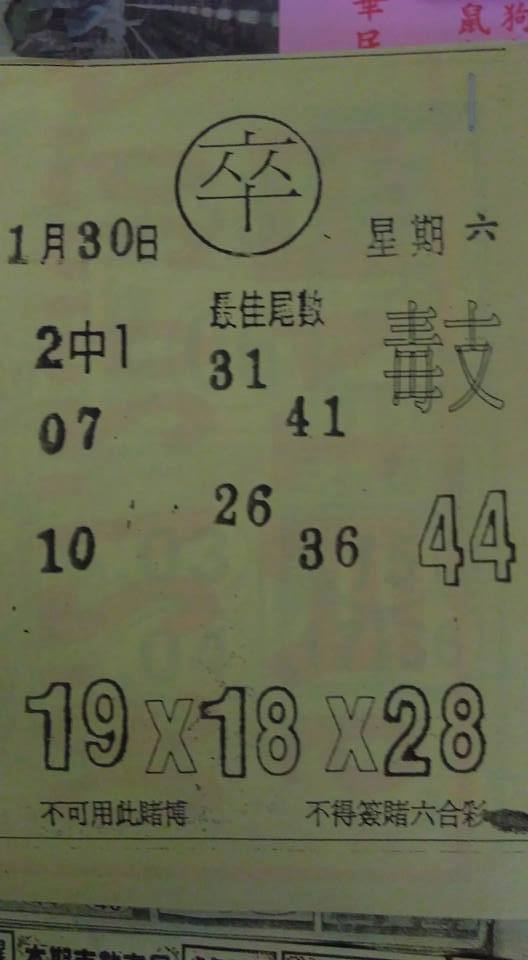 華民
鼠狗
卒
1月30日
星期六
最佳尾數
2中1
31
41
07
26
36
10
44
19X18X28
不可用此賭博
不得簽賭六合彩